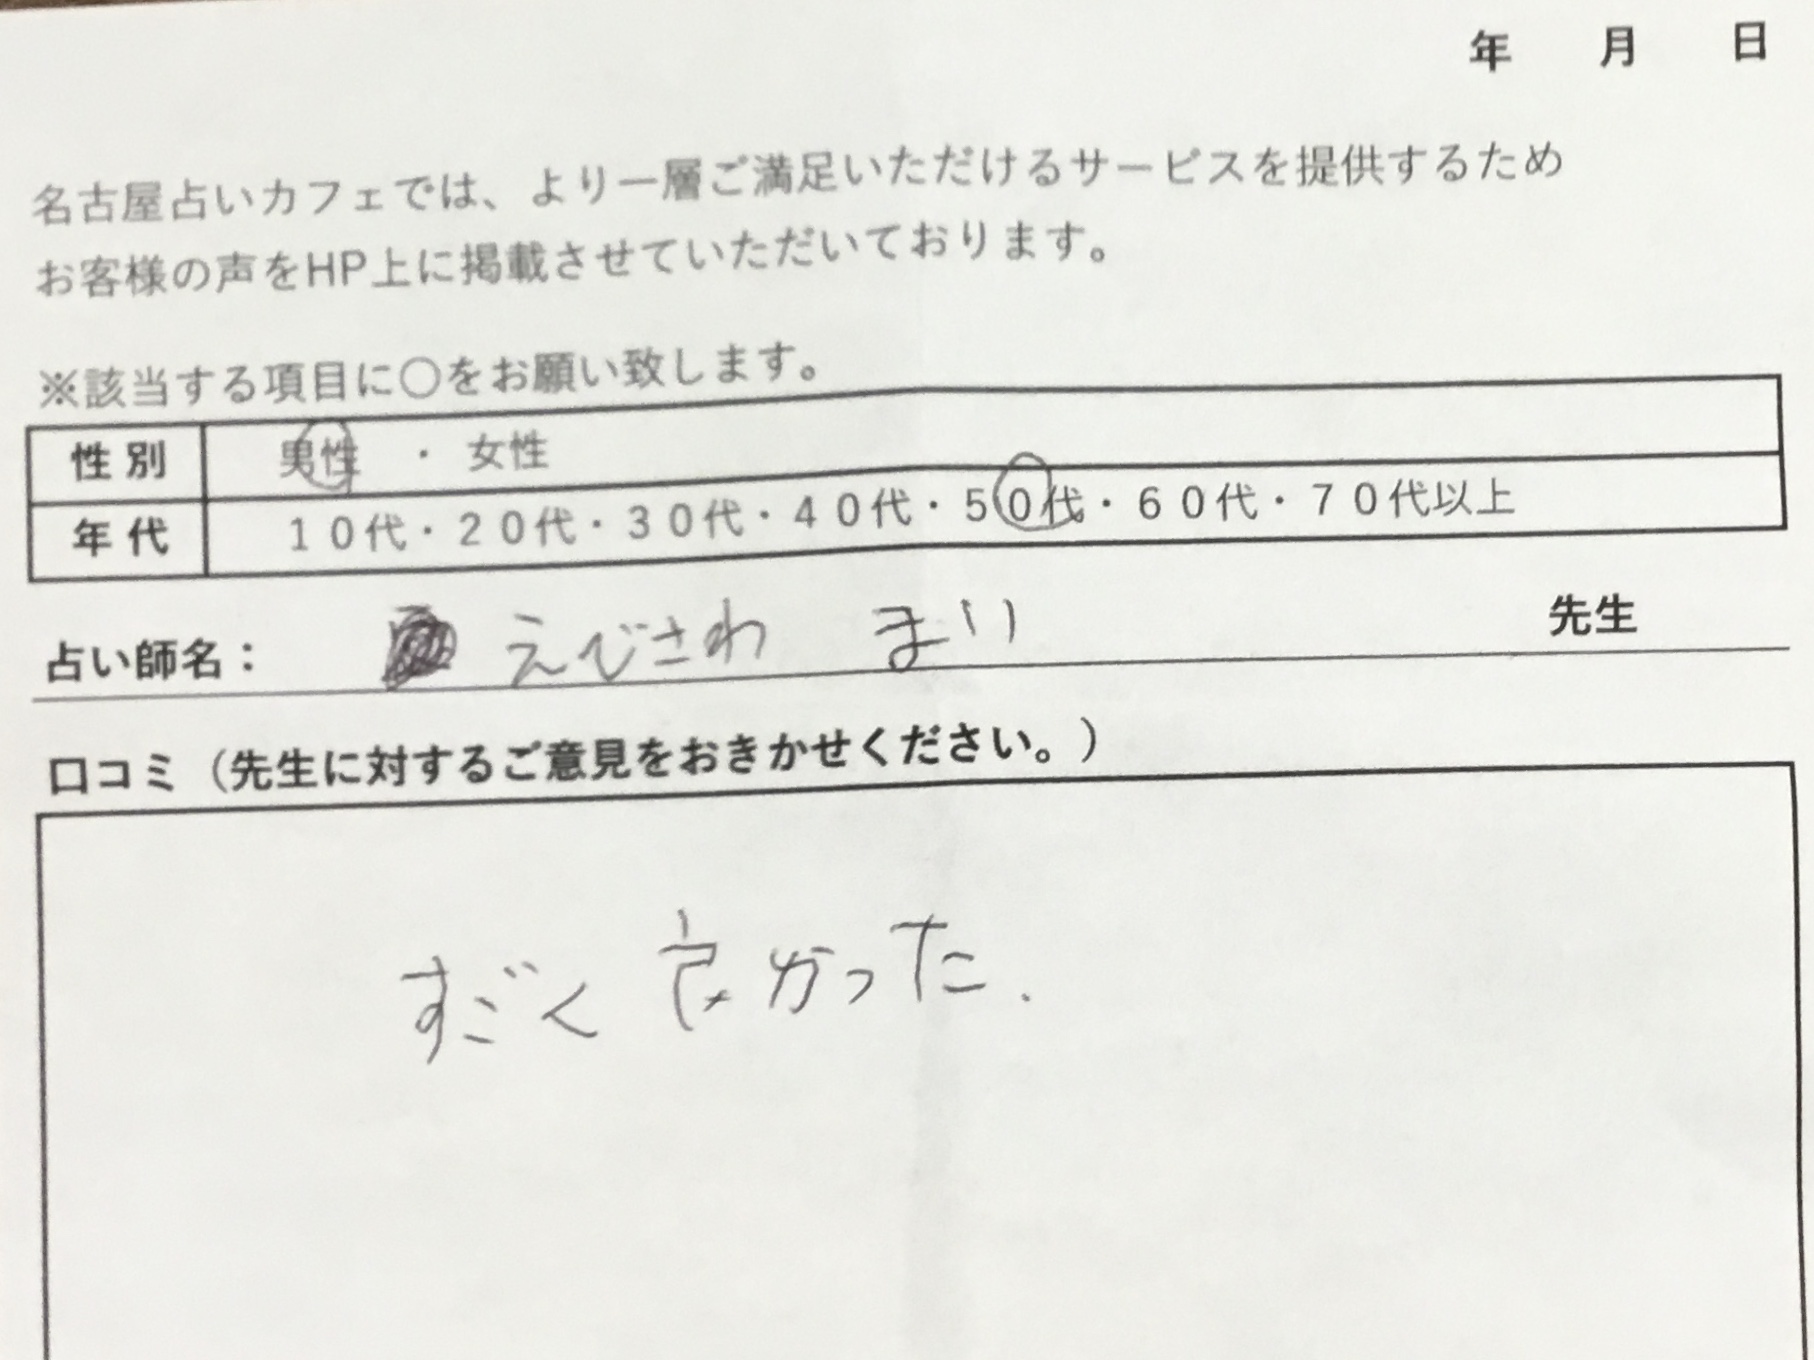 年 月 日
名古屋占いカフェでは、より一層ご満足いただけるサービスを提供するため
お客様の声をHP上に掲載させていただいております。
※該当する項目に〇をお願い致します。
性別 男性 ・ 女性
年代 10代・20代・30代・40代・50代・60代・70代以上
占い師名： えびさわ まり 先生
口コミ（先生に対するご意見をおきかせください。）
すごく良かった.